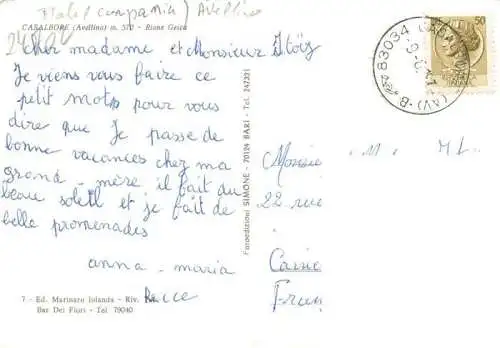 Italie (campania) Avellino
CASALBORE (Avellino) m. 570 - Rione Gesca
Cher madame et Monsieur
Je viens vous faire ce
petit mots pour vous
dire que Je passe de
bonne vacances chez ma
grand - mère il fait du
beau soleil et je fait de
belle promenades
anna - maria
7 - Ed. Marinaro Iolanda - Riv.
Bar Dei Fiori - Tel 79040
Fotoedizioni SIMONE - 70124 BARI - Tel. 247321
50
83034
(AV) - B
Monsie
M
22 rue